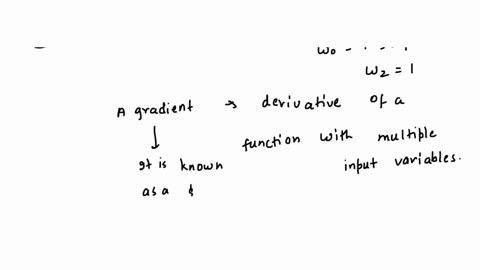 w₂ = 1
A gradient → derivative of a
function with multiple
input variables.
↓
It is known
as a